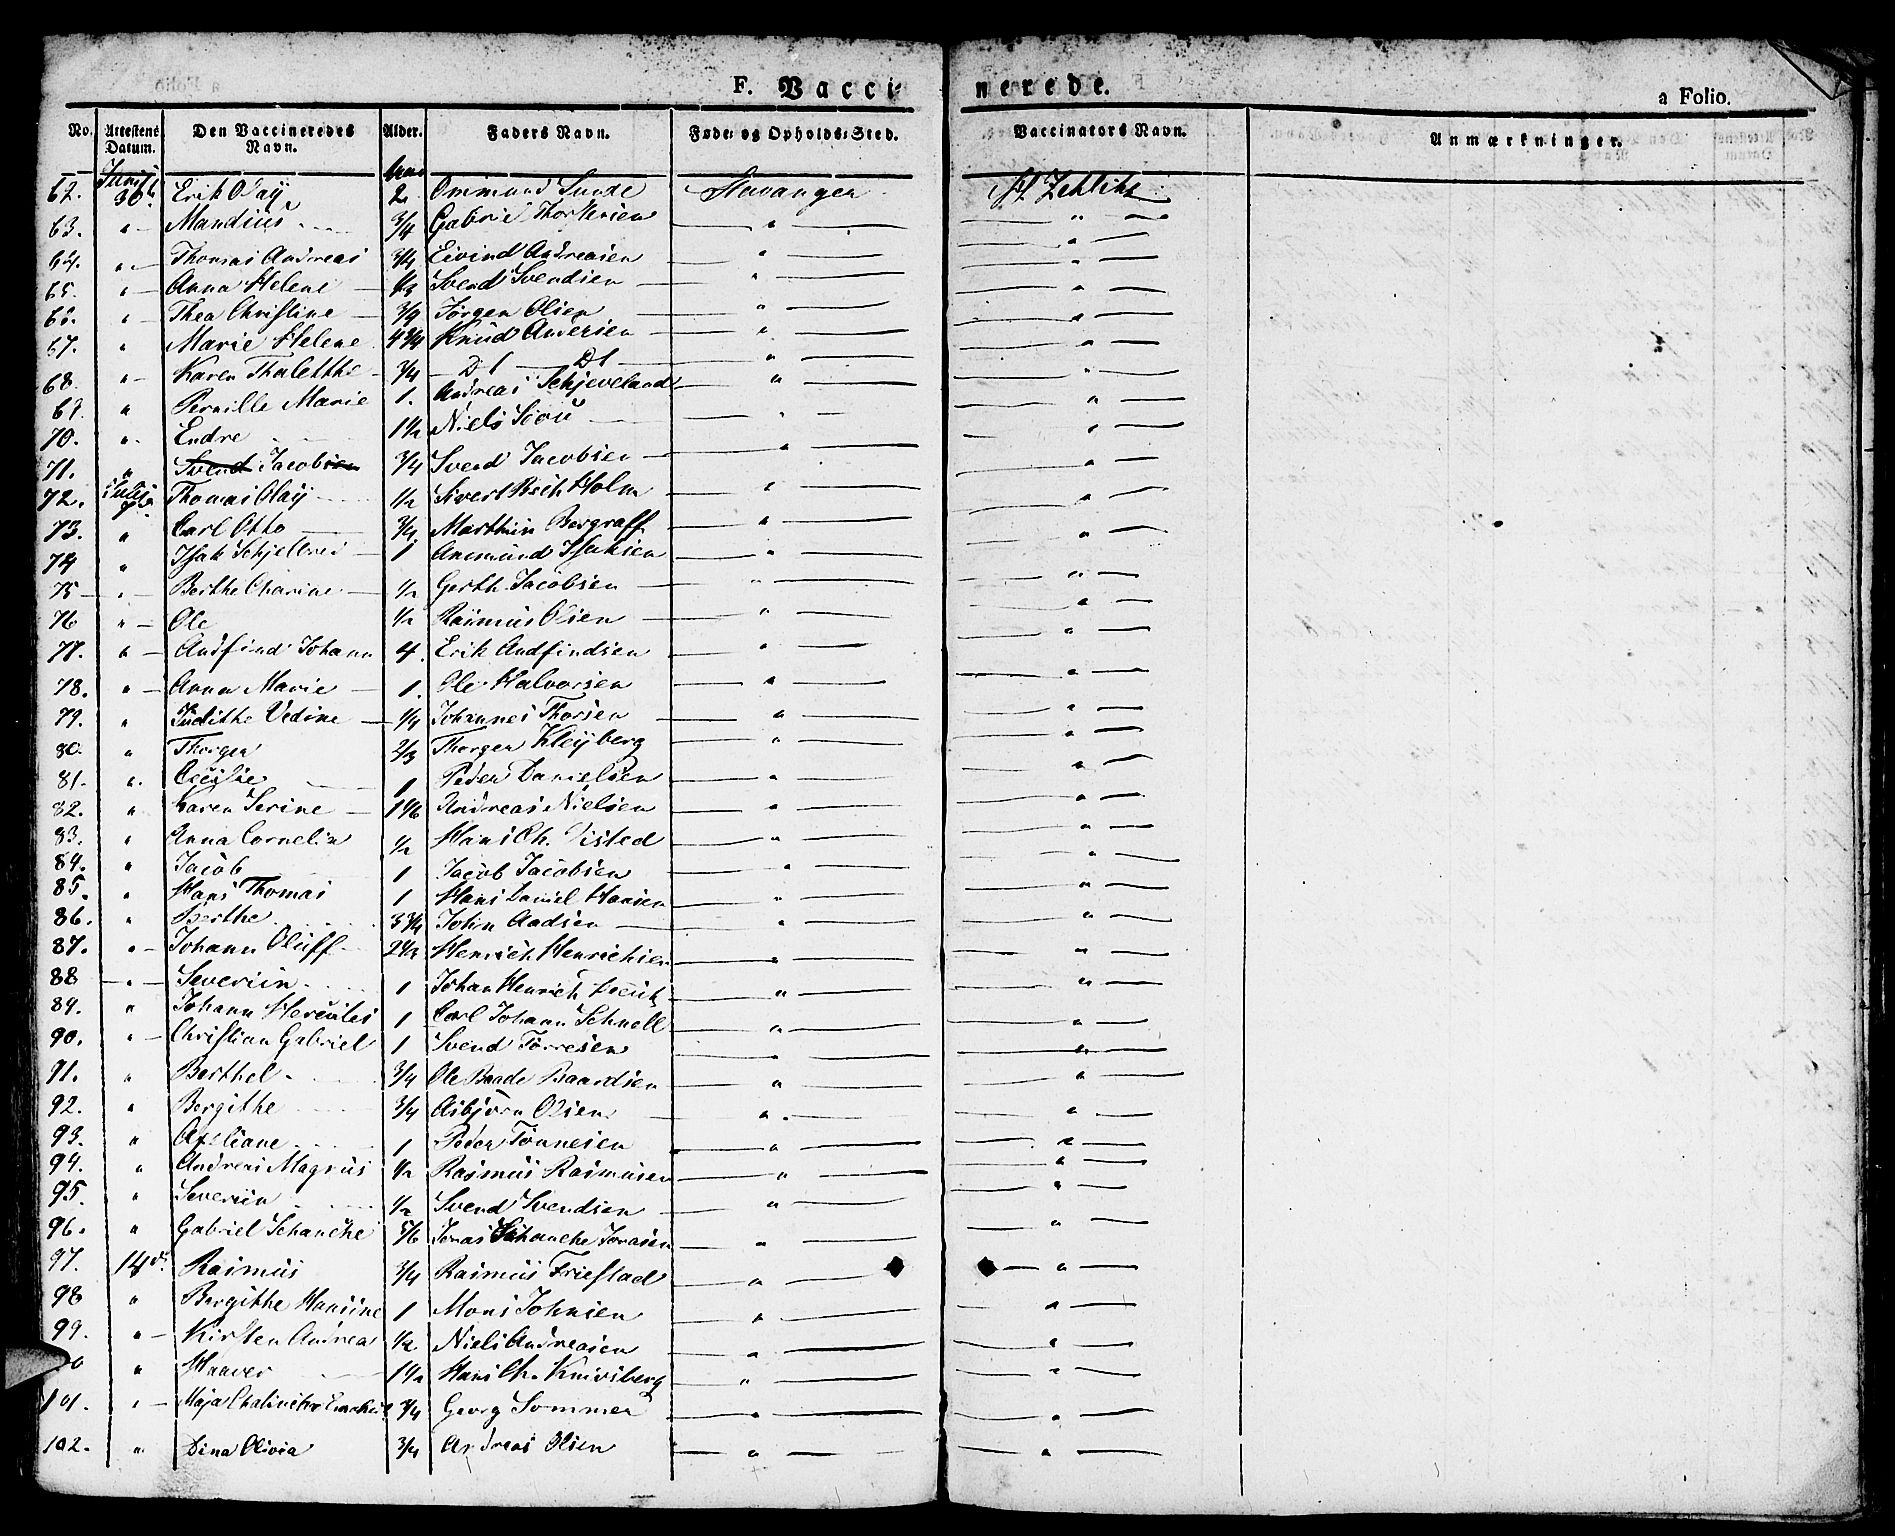 F. Vaccinerede.
a Folio.
No. Attestens Datum. Den Vaccineredes Navn. Alder. Faders Navn. Føde- og Opholds-Sted. Vaccinators Navn. Anmærkninger.
62. Junij 30 Erik Olay 2 Ommund Sunde Stavanger
63. " — Mandius 3/4 Gabriel — " — — " —
64. " — Thomas Andreas 3/4 Eivind Andreasen — " — — " —
65. " — Anna Helene — Svend Svendsen — " — — " —
66. " — Thea Christine — Jørgen Olsen — " — — " —
67. " Marie Helene 4 3/4 Knud Andersen — " — — " —
68. " — Karen Thalethe 3/4 — Dt — Dt — " — — " —
69. " Pernille Marie 1. Andreas Schjeveland — " — — " —
70. " Endre 1 1/2 Niels — " — — " —
71. " Svend Jacobsen 3/4 Svend Jacobsen — " — — " —
72. Julij Thomas Olay 1/2 Sivert Holm — " — — " —
73. " Carl Otto 3/4 Marthin Bergraff — " — — " —
74 " Isak 1 Ammund Isaksen — " — — " —
75 — " — Berthe 1/2 Gerth Jacobsen — " — — " —
76 " — Ole 1/2 Rasmus Olsen — " — — " —
77. " — Andfind Johann 4. Erik Andfindsen — " — — " —
78. " — Anna Marie — 1. Ole Halvorsen — " — — " —
79. " Judithe Vedine — 1/4 Johannes Thorsen — " — — " —
80. " Thorger 2/3 Thorger Kleyberg — " — — " —
81. " Cecilie 1 Peder Danielsen — " — — " —
82. " Karen Serine — 1 1/6 Andreas Nielsen — " — — " —
83. " Anna Cornelia 1/2 Hans Ch. Visted — " — — " —
84. " Jacob 1 Jacob Jacobsen — " — — " —
85. " Hans Thomas 1 Hans Daniel Hansen — " — — " —
86. " Berthe 3 3/4 John Aadsen — " — — " —
87. " — Johann Oluff 2 1/2 Henrich Henrichsen — " — — " —
88 — " — Severiin 1 Johan Henrich — " — — " —
89. " Johann Hercules 1 Carl Johann Schnell — " — — " —
90. " — Christian Gabriel 1 Svend Tørresen — " — — " —
91. " Berthel 3/4 Ole Baade Baardsen — " — — " —
92. " Bergithe 3/4 Asbjørn Olsen — " — — " —
93. " Axeliane 1 Peder Tønnesen — " — — " —
94. " Andreas Magnus 1/2 Rasmus Rasmusen — " — — " —
95. " Severiin 1/2 Svend Svendsen — " — — " —
96. " Gabriel Schanche 5/6 Jonas Schanche Jonasen — " — — " —
97. 14 d. Rasmus 3/4 Rasmus Friestad — " — — " —
98 " Bergithe Hansine 1 Mons Johnsen — " — — " —
99. " — Kirsten Andrea 1/2 Niels Andreasen — " — — " —
" Haaver 1 1/2 Hans Ch. Knivsberg — " — — " —
101. " — Maja 3/4 Georg Sommer — " — — " —
102. " Dina Olivia 3/4 Andreas Olsen — " — — " —